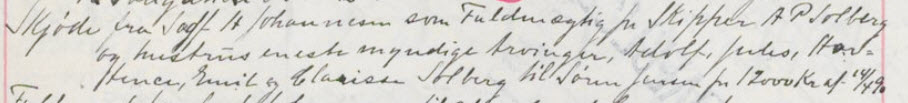 Skjöde fra Sagf. A Johannesen som Fuldmægtig for Skipper A P Solberg
og hustrus eneste myndige Arvinger, Adolf, Jules, Hor-
tence, Emil og Clarisse Solberg til Sören Jensen for 12000 Kr af 14/4 90